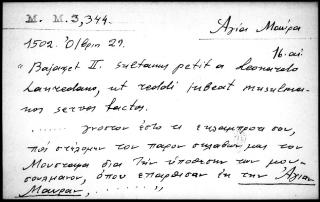 M. M. 3, 344. Ἁγία Μαύρα
1502. Ὀ/βρίῳ 21. 16. αἰ.
"Bajazet II. sultanus petit a Leonardo
Lauredano, ut reddi jubeat musulma-
nos servos factos.
...... γνοστον ἔστο τι εκλαμπροτι σου,
πος στέλομεν τον παρον σκλαβον μας τον
Μουσταφα δια την υποθεσην των μου-
σουλμανον, ὁπου ἐπαρθισαν ἐκ την Ἁγιαν
Μαυραν, ......"